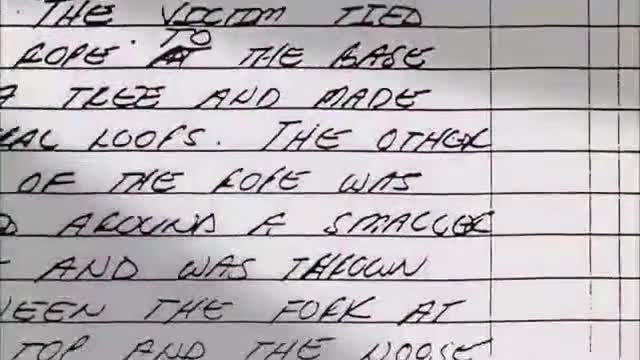 THE VICTIM TIED
ROPE TO THE BASE
A TREE AND MADE
RAL LOOPS. THE OTHER
OF THE ROPE WAS
D AROUND A SMALLER
AND WAS THROWN
WEEN THE FORK AT
TOP AND THE NOOSE